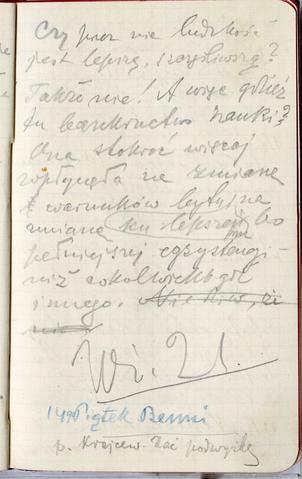 Czy przez nie ludzkość
jest lepszą, szczęśliwszą?
Także nie! A więc gdzież
tu bankructwo nauki?
Ona stokroć więcej
wpłynęła na zmianę
warunków bytu i na
zmianę ku lepszej, bo
pełniejszej egzystencji
niż cokolwiekbądź
innego. Nie
Piątek Benni
p. Krajew. Dać podwyżkę